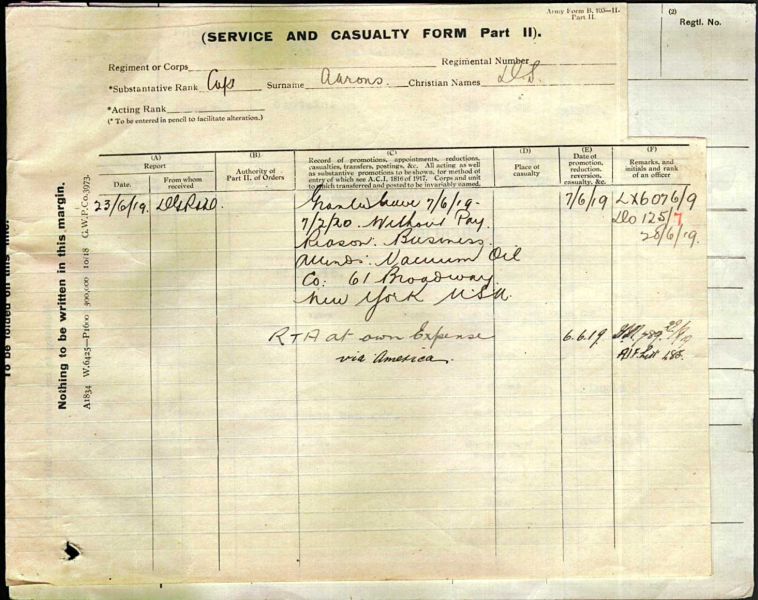 Army Form B. 103—II.
Part II.
(2)
Regtl. No.
(SERVICE AND CASUALTY FORM Part II).
Regiment or Corps
Regimental Number
*Substantative Rank Cap
Surname Aarons
Christian Names D.S.
*Acting Rank
(* To be entered in pencil to facilitate alteration.)
(A)
Report
Date.
From whom received
(B)
Authority of Part II. of Orders
(C)
Record of promotions, appointments, reductions,
casualties, transfers, postings, &c. All acting as well
as substantive promotions to be shown, for method of
entry of which see A.C.I. 1816 of 1917. Corps and unit
to which transferred and posted to be invariably named.
(D)
Place of casualty
(E)
Date of promotion, reduction, reversion, casualty, &c.
(F)
Remarks, and initials and rank of an officer
23/6/19. Granted leave 7/6/19- 7/6/19 LX6076/9
7/2/20. Without Pay. DO 125/7
Reason: Business. 28/6/19.
Attends: Vacuum Oil
Co: 61 Broadway
New York USA.
RTA at own Expense 6.6.19
via America.
Nothing to be written in this margin.
A1834 W.6425—P1600 500,000 10/18 G.W.P.Co.3973.
To be folded on this line.